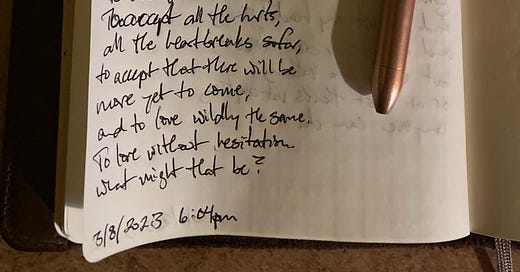 To accept all the hurts,
all the heartbreaks so far,
to accept that there will be
more yet to come,
and to love wildly the same.
To love without hesitation
what might that be?
3/8/2023 6:04pm